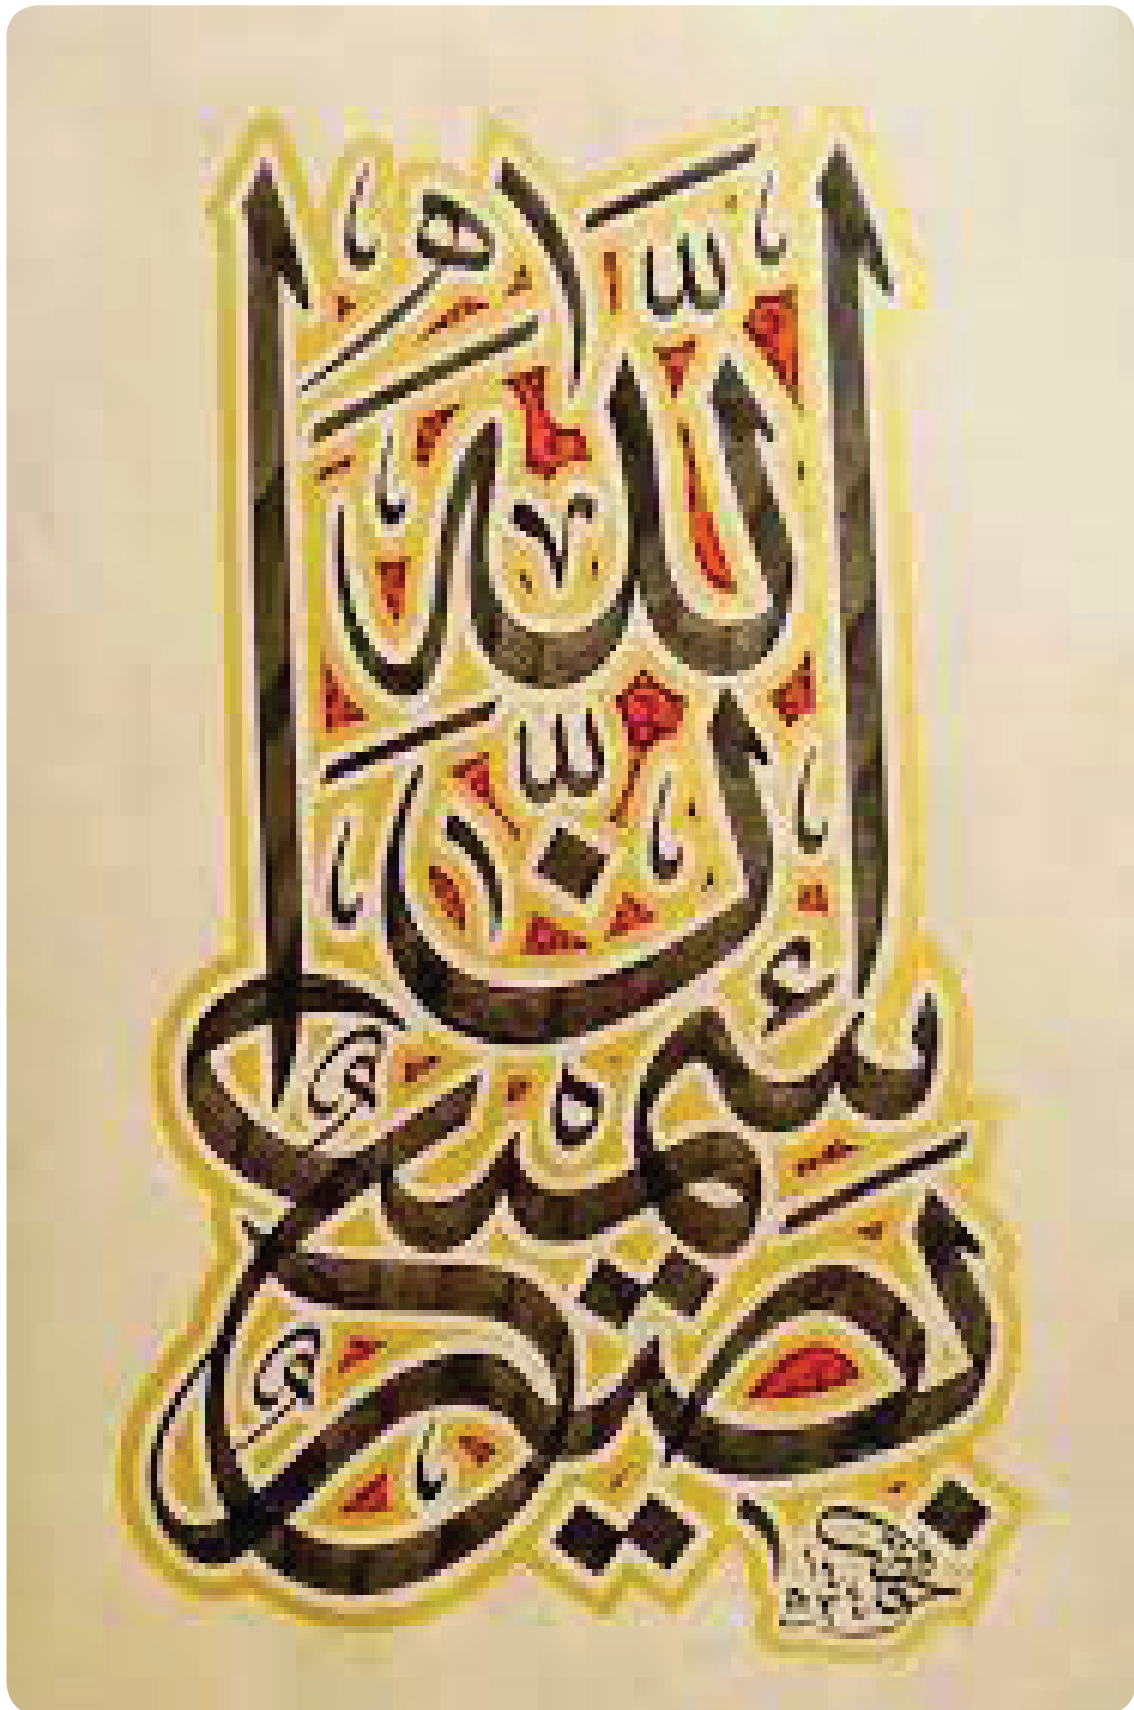 إِنَّ اللَّهَ سَمِيعٌ بَصِيرٌ